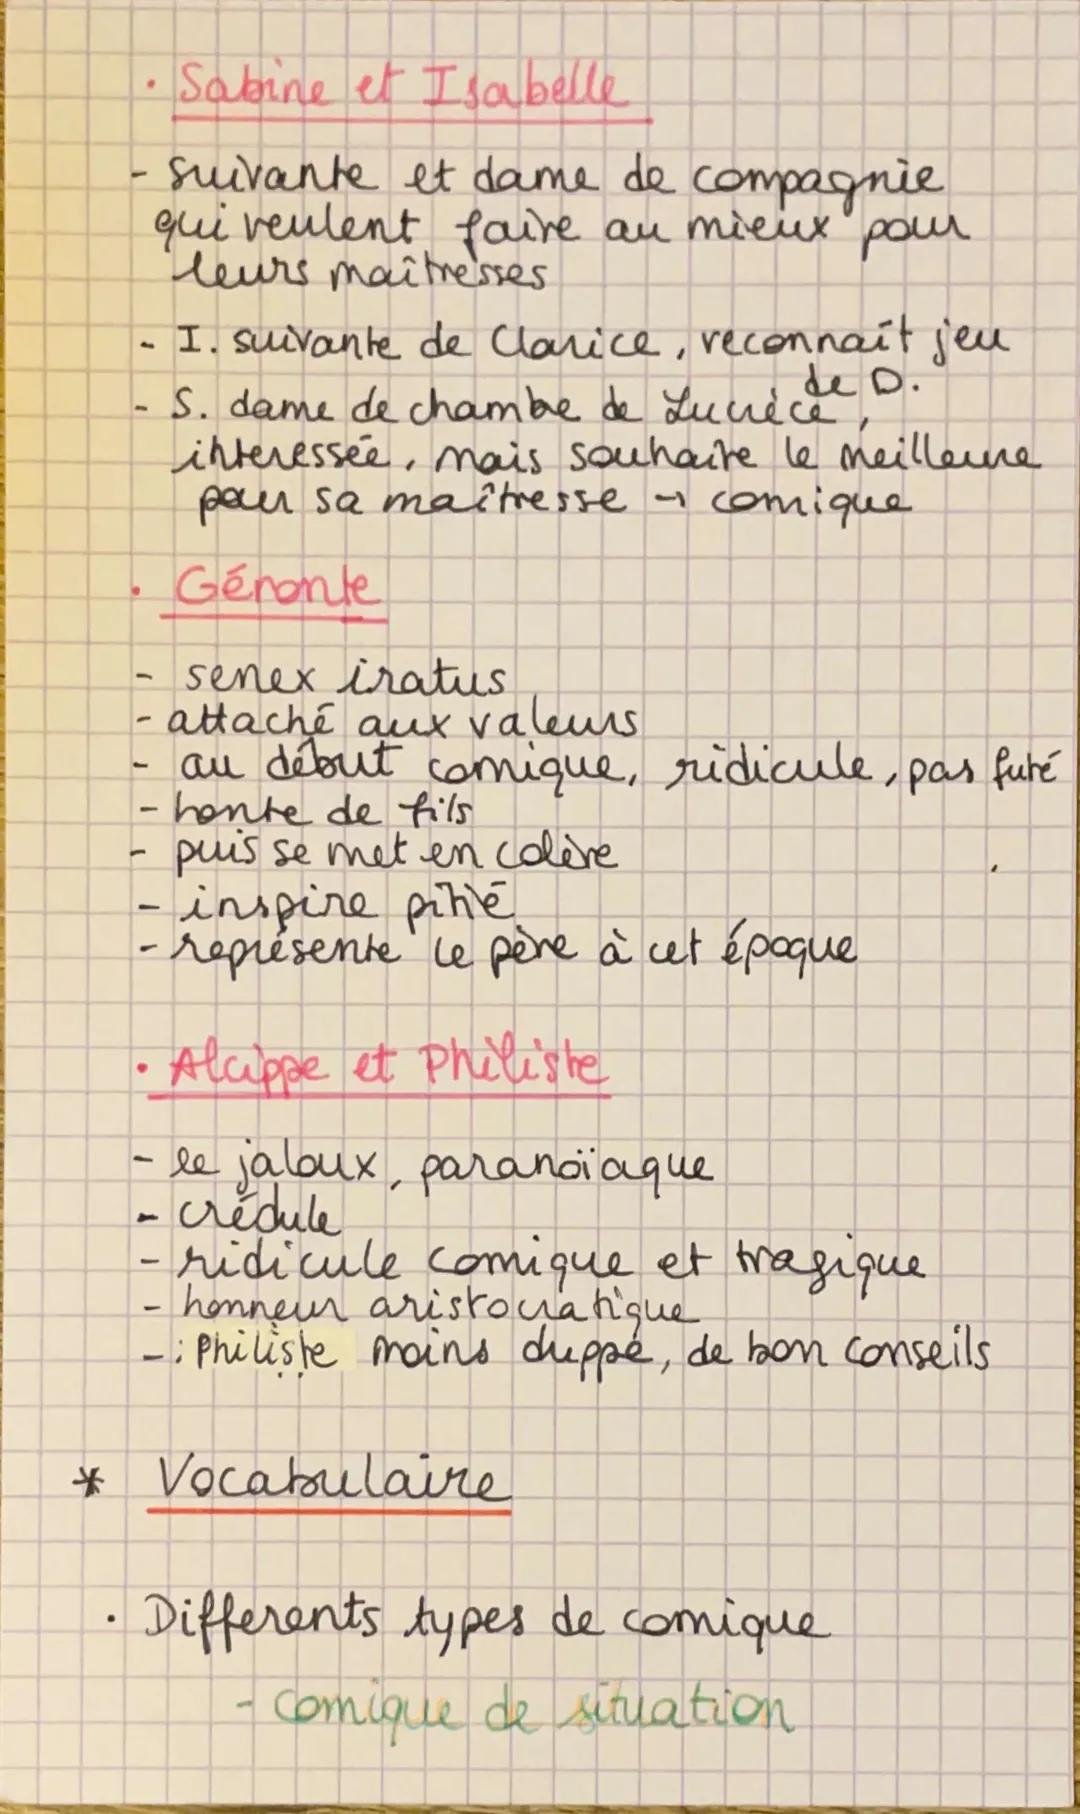 · Sabine et Isabelle
- suivante et dame de compagnie
qui veulent faire au mieux pour
leurs maîtresses
- I. suivante de Clarice, reconnaît jeu
de D.
- S. dame de chambe de Lucrèce,
interessée, mais souhaite le meilleure
pour sa maîtresse → comique
· Géronte
- senex iratus
- attaché aux valeurs
- au début comique, ridicule, pas futé
- honte de fils
- puis se met en colère
- inspire pitié
- représente le père à cet époque
· Alcippe et Philiste
- le jaloux, paranoïaque
- crédule
- ridicule comique et tragique
- honneur aristocratique
- : Philiste moins duppé, de bon conseils
* Vocabulaire
· Differents types de comique
- comique de situation